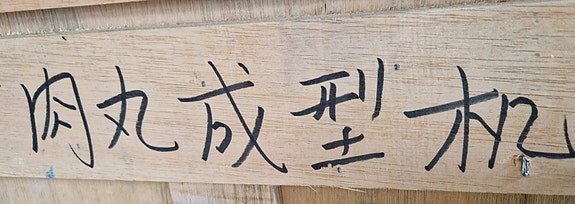 肉丸成型机